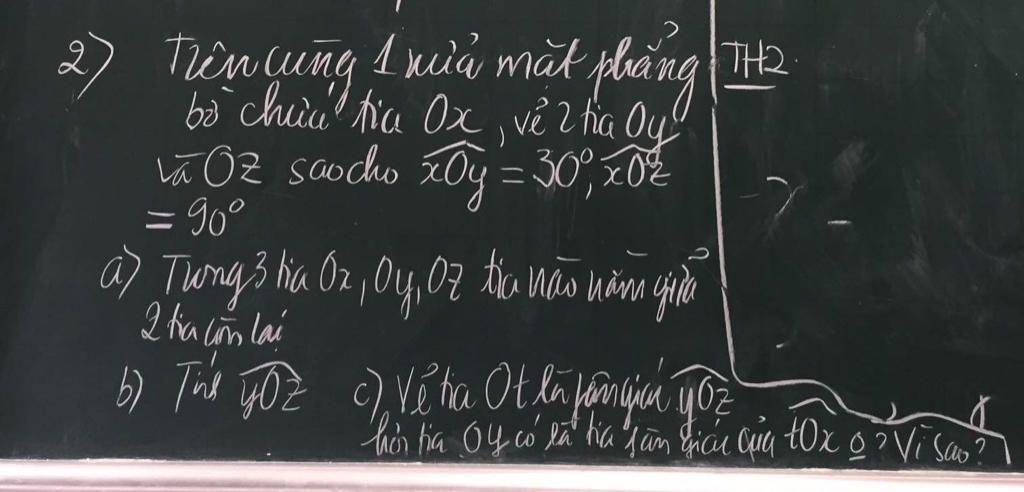 2) Trên cùng 1 nửa mặt phẳng
bờ chứa tia Ox, vẽ 2 tia Oy
và Oz sao cho xOy = 30°, xOz
= 90°
a) Trong 3 tia Ox, Oy, Oz tia nào nằm giữa
2 tia còn lại
b) Tính yOz
c) Vẽ tia Ot là phân giác yOz
hỏi tia Oy có là tia phân giác của tOx o? Vì sao?
TH2